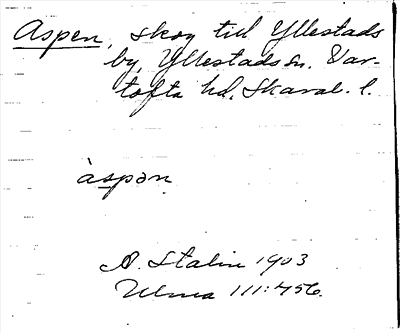 Aspen, skog till Yllestads
by, Yllestads sn. Var-
tofta hd. Skarab. l.
àspən
A. Stalin 1903
Ulma 111:456.